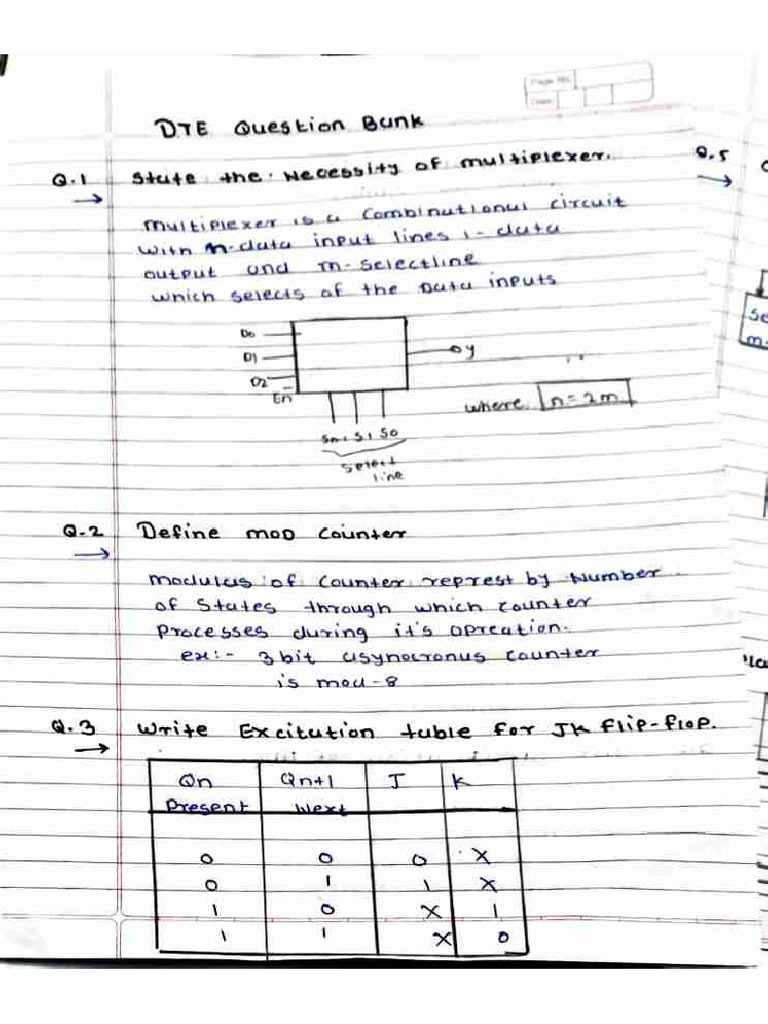 Page No.
Date
DTE Question Bank
Q.1 State the Necessity of multiplexer.
multiplexer is a combinational circuit
with n-data input lines 1-data
output and m-selectline
which selects of the Data inputs
D0
D1
D2
En
y
Sn, S1 S0
select
line
where n=2m
Q.2 Define mod counter
modulus of counter represt by Number
of states through which counter
processes during it's opreation.
ex:- 3 bit asynocronus counter
is mod-8
Q.3 Write Excitution table for JK flip-flop.
Qn Qn+1 J K
Present Next
0 0 0 X
0 1 1 X
1 0 X 1
1 1 X 0
Q.5
Se
m-